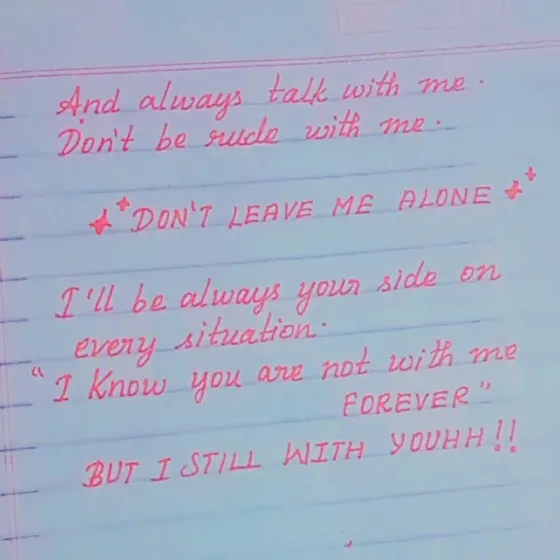 And always talk with me.
Don't be rude with me.
DON'T LEAVE ME ALONE
I'll be always your side on
every situation.
"I Know you are not with me
FOREVER"
BUT I STILL WITH YOUHH!!